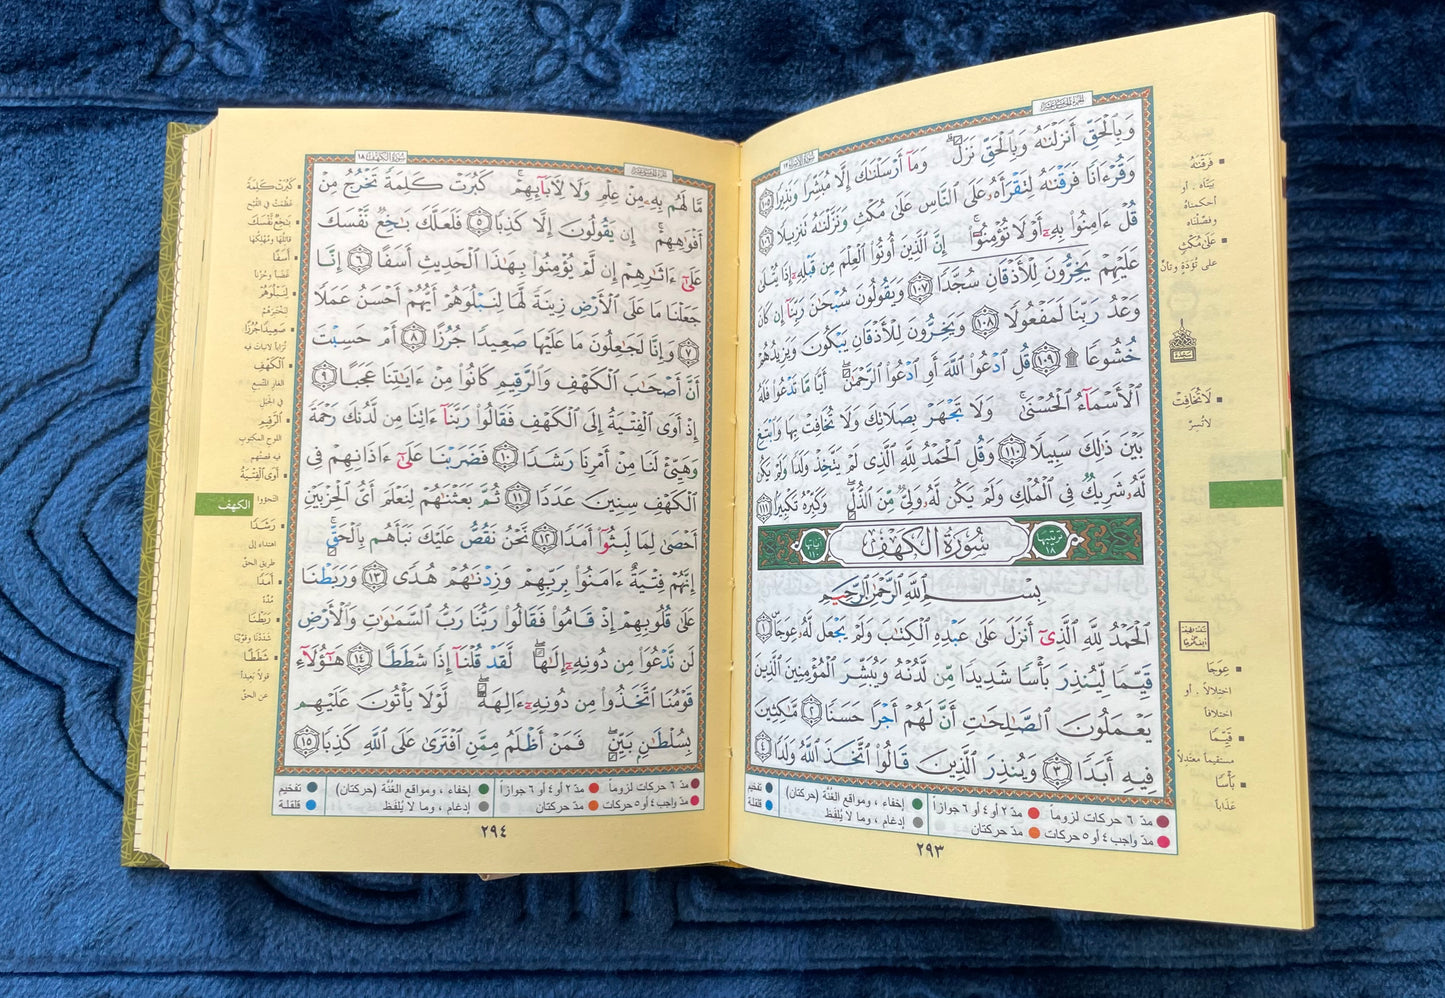 الجزء الخامس عشر
سورة الإسراء ١٧
وَبِٱلْحَقِّ أَنزَلْنَـٰهُ وَبِٱلْحَقِّ نَزَلَ ۗ وَمَآ أَرْسَلْنَـٰكَ إِلَّا مُبَشِّرًا وَنَذِيرًا ١٠٥
وَقُرْءَانًا فَرَقْنَـٰهُ لِتَقْرَأَهُۥ عَلَى ٱلنَّاسِ عَلَىٰ مُكْثٍ وَنَزَّلْنَـٰهُ تَنزِيلًا ١٠٦
قُلْ ءَامِنُوا۟ بِهِۦٓ أَوْ لَا تُؤْمِنُوٓا۟ ۚ إِنَّ ٱلَّذِينَ أُوتُوا۟ ٱلْعِلْمَ مِن قَبْلِهِۦٓ إِذَا يُتْلَىٰ
عَلَيْهِمْ يَخِرُّونَ لِلْأَذْقَانِ سُجَّدًا ١٠٧ وَيَقُولُونَ سُبْحَـٰنَ رَبِّنَآ إِن كَانَ
وَعْدُ رَبِّنَا لَمَفْعُولًا ١٠٨ وَيَخِرُّونَ لِلْأَذْقَانِ يَبْكُونَ وَيَزِيدُهُمْ
خُشُوعًا ١٠٩ ۩ قُلِ ٱدْعُوا۟ ٱللَّهَ أَوِ ٱدْعُوا۟ ٱلرَّحْمَـٰنَ ۖ أَيًّا مَّا تَدْعُوا۟ فَلَهُ
ٱلْأَسْمَآءُ ٱلْحُسْنَىٰ ۚ وَلَا تَجْهَرْ بِصَلَاتِكَ وَلَا تُخَافِتْ بِهَا وَٱبْتَغِ
بَيْنَ ذَٰلِكَ سَبِيلًا ١١٠ وَقُلِ ٱلْحَمْدُ لِلَّهِ ٱلَّذِى لَمْ يَتَّخِذْ وَلَدًا وَلَمْ يَكُن
لَّهُۥ شَرِيكٌ فِى ٱلْمُلْكِ وَلَمْ يَكُن لَّهُۥ وَلِىٌّ مِّنَ ٱلذُّلِّ ۖ وَكَبِّرْهُ تَكْبِيرًۢا ١١١
ترتيبها ١٨ سُورَةُ ٱلْكَهْفِ آياتها ١١٠
بِسْمِ ٱللَّهِ ٱلرَّحْمَـٰنِ ٱلرَّحِيمِ
ٱلْحَمْدُ لِلَّهِ ٱلَّذِىٓ أَنزَلَ عَلَىٰ عَبْدِهِ ٱلْكِتَـٰبَ وَلَمْ يَجْعَل لَّهُۥ عِوَجَا ۜ ١
قَيِّمًا لِّيُنذِرَ بَأْسًا شَدِيدًا مِّن لَّدُنْهُ وَيُبَشِّرَ ٱلْمُؤْمِنِينَ ٱلَّذِينَ
يَعْمَلُونَ ٱلصَّـٰلِحَـٰتِ أَنَّ لَهُمْ أَجْرًا حَسَنًا ٢ مَّـٰكِثِينَ
فِيهِ أَبَدًا ٣ وَيُنذِرَ ٱلَّذِينَ قَالُوا۟ ٱتَّخَذَ ٱللَّهُ وَلَدًا ٤
فَرَقْنَـٰهُ
بيّناه . أو
أحكمناه
وفصّلناه
عَلَىٰ مُكْثٍ
على تُؤَدَةٍ وتأنٍّ
سجدة
لَا تُخَافِتْ
لا تُسِرَّ
عِوَجَا
اختلالاً . أو
اختلافاً
قَيِّمًا
مستقيماً معتدلاً
بَأْسًا
عَذاباً
مدّ ٦ حركات لزوماً مدّ ٢ أو ٤ أو ٦ جوازاً
مدّ واجب ٤ أو ٥ حركات مدّ حركتان
إخفاء ، ومواقع الغُنَّة (حركتان)
إدغام ، وما لا يُلفَظ
تفخيم
قلقلة
٢٩٣
الجزء الخامس عشر
سورة الكهف ١٨
مَّا لَهُم بِهِۦ مِنْ عِلْمٍ وَلَا لِـَٔابَآئِهِمْ ۚ كَبُرَتْ كَلِمَةً تَخْرُجُ مِنْ
أَفْوَٰهِهِمْ ۚ إِن يَقُولُونَ إِلَّا كَذِبًا ٥ فَلَعَلَّكَ بَـٰخِعٌ نَّفْسَكَ
عَلَىٰٓ ءَاثَـٰرِهِمْ إِن لَّمْ يُؤْمِنُوا۟ بِهَـٰذَا ٱلْحَدِيثِ أَسَفًا ٦ إِنَّا
جَعَلْنَا مَا عَلَى ٱلْأَرْضِ زِينَةً لَّهَا لِنَبْلُوَهُمْ أَيُّهُمْ أَحْسَنُ عَمَلًا
٧ وَإِنَّا لَجَـٰعِلُونَ مَا عَلَيْهَا صَعِيدًا جُرُزًا ٨ أَمْ حَسِبْتَ
أَنَّ أَصْحَـٰبَ ٱلْكَهْفِ وَٱلرَّقِيمِ كَانُوا۟ مِنْ ءَايَـٰتِنَا عَجَبًا ٩
إِذْ أَوَى ٱلْفِتْيَةُ إِلَى ٱلْكَهْفِ فَقَالُوا۟ رَبَّنَآ ءَاتِنَا مِن لَّدُنكَ رَحْمَةً
وَهَيِّئْ لَنَا مِنْ أَمْرِنَا رَشَدًا ١٠ فَضَرَبْنَا عَلَىٰٓ ءَاذَانِهِمْ فِى
ٱلْكَهْفِ سِنِينَ عَدَدًا ١١ ثُمَّ بَعَثْنَـٰهُمْ لِنَعْلَمَ أَىُّ ٱلْحِزْبَيْنِ
أَحْصَىٰ لِمَا لَبِثُوٓا۟ أَمَدًا ١٢ نَّحْنُ نَقُصُّ عَلَيْكَ نَبَأَهُم بِٱلْحَقِّ ۚ
إِنَّهُمْ فِتْيَةٌ ءَامَنُوا۟ بِرَبِّهِمْ وَزِدْنَـٰهُمْ هُدًى ١٣ وَرَبَطْنَا
عَلَىٰ قُلُوبِهِمْ إِذْ قَامُوا۟ فَقَالُوا۟ رَبُّنَا رَبُّ ٱلسَّمَـٰوَٰتِ وَٱلْأَرْضِ
لَن نَّدْعُوَا۟ مِن دُونِهِۦٓ إِلَـٰهًا ۖ لَّقَدْ قُلْنَآ إِذًا شَطَطًا ١٤ هَـٰٓؤُلَآءِ
قَوْمُنَا ٱتَّخَذُوا۟ مِن دُونِهِۦٓ ءَالِهَةً ۖ لَّوْلَا يَأْتُونَ عَلَيْهِم
بِسُلْطَـٰنٍۭ بَيِّنٍ ۖ فَمَنْ أَظْلَمُ مِمَّنِ ٱفْتَرَىٰ عَلَى ٱللَّهِ كَذِبًا ١٥
كَبُرَتْ كَلِمَةً
عظُمَت في القُبْح
بَـٰخِعٌ نَّفْسَكَ
قاتلها ومُهلِكُها
أَسَفًا
غضباً وحُزناً
لِنَبْلُوَهُمْ
لنختبرهم
صَعِيدًا جُرُزًا
تراباً لا نبات فيه
ٱلْكَهْفِ
الغار المتّسع
في الجبل
ٱلرَّقِيمِ
اللوح المكتوب
فيه قصتهم
أَوَى ٱلْفِتْيَةُ
التجؤوا
رَشَدًا
اهتداء إلى
طريق الحقّ
أَمَدًا
مُدّة
رَبَطْنَا
شددْنا وقوّينا
شَطَطًا
قولاً بعيداً
عن الحقّ
الكهف
مدّ ٦ حركات لزوماً مدّ ٢ أو ٤ أو ٦ جوازاً
مدّ واجب ٤ أو ٥ حركات مدّ حركتان
إخفاء ، ومواقع الغُنَّة (حركتان)
إدغام ، وما لا يُلفَظ
تفخيم
قلقلة
٢٩٤